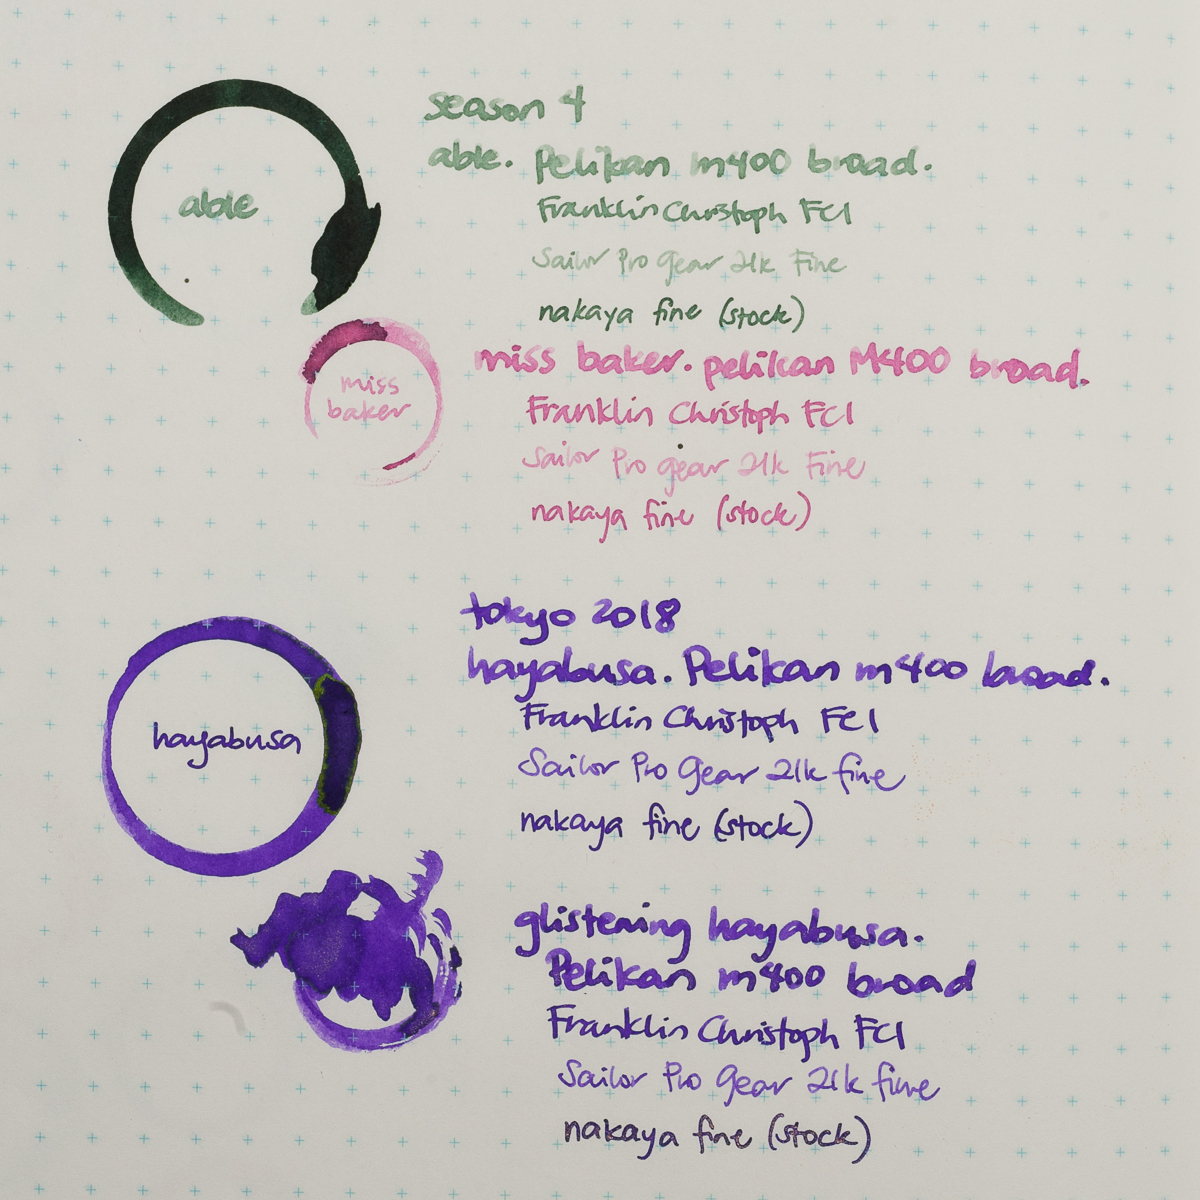 season 4
able. Pelikan m400 broad.
able
Franklin Christoph FC1
Sailor Pro Gear 21k Fine
nakaya fine (stock)
miss baker. pelikan M400 broad.
miss
baker
Franklin Christoph FC1
Sailor Pro gear 21k Fine
nakaya fine (stock)
tokyo 2018
hayabusa. Pelikan m400 broad.
hayabusa
Franklin Christoph FC1
Sailor Pro Gear 21k fine
nakaya fine (stock)
glistening hayabusa.
Pelikan m400 broad
Franklin Christoph FC1
Sailor Pro Gear 21k fine
nakaya fine (stock)